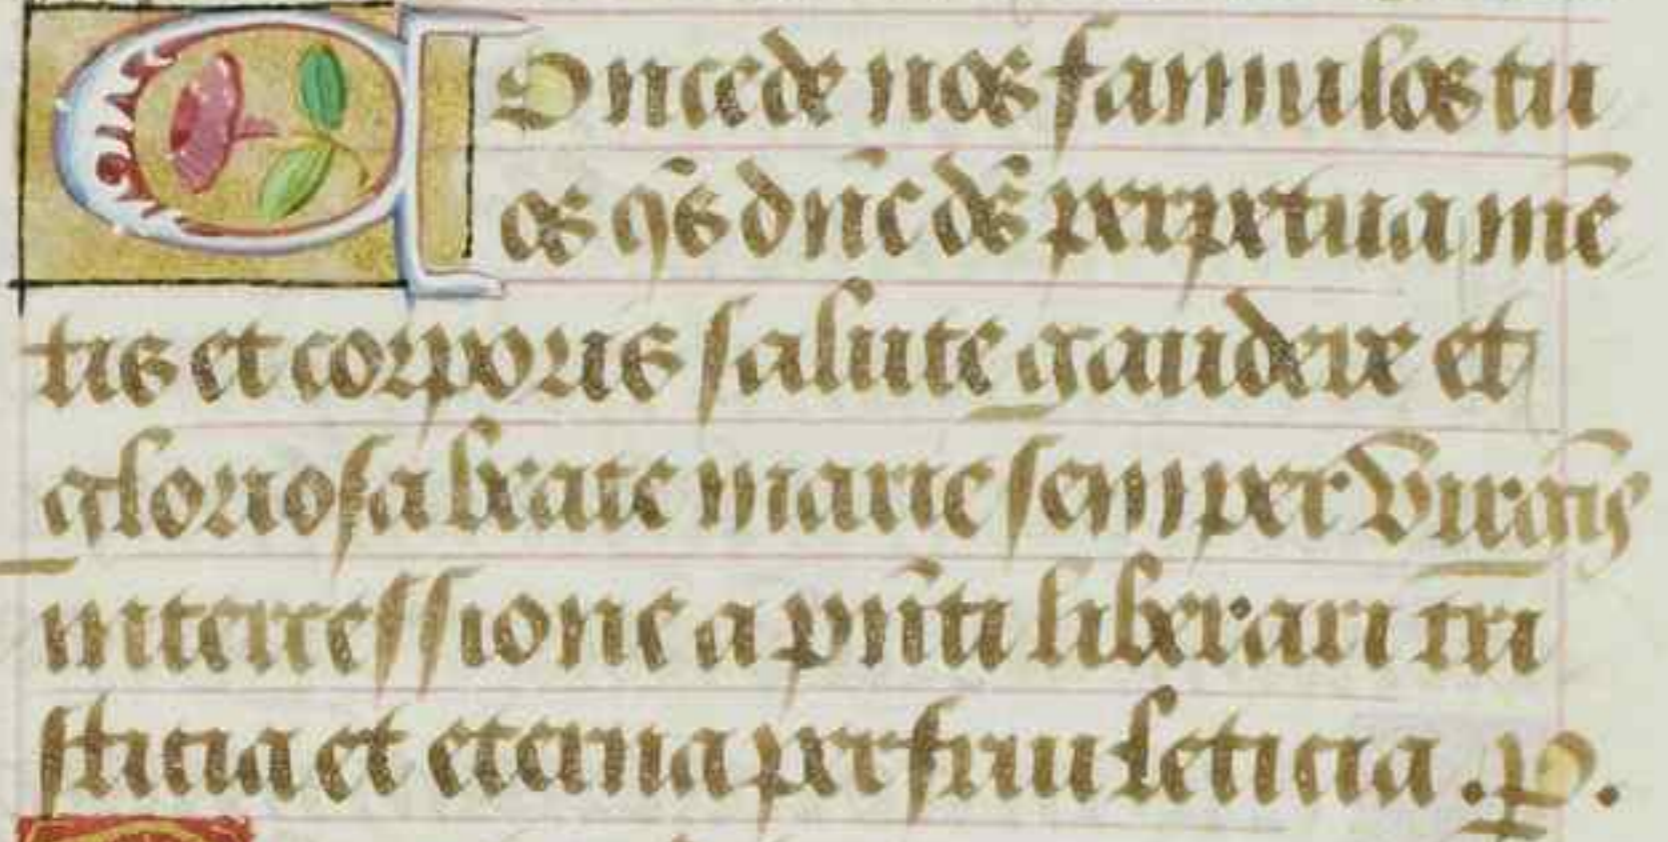 COncede nos famulos tu
os q̄s dn̄e de᷒ perpetua mē
tis et corporis salute gaudere et
gloriosa beate marie semper virgīs
intercessione a pn̄ti liberari tri
sticia et eterna perfrui leticia . P .